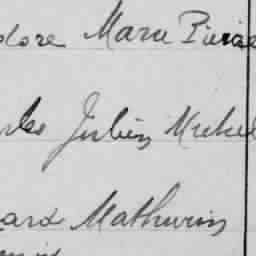 dore Marie Pierre
rles Julien Michel
ard Mathurin